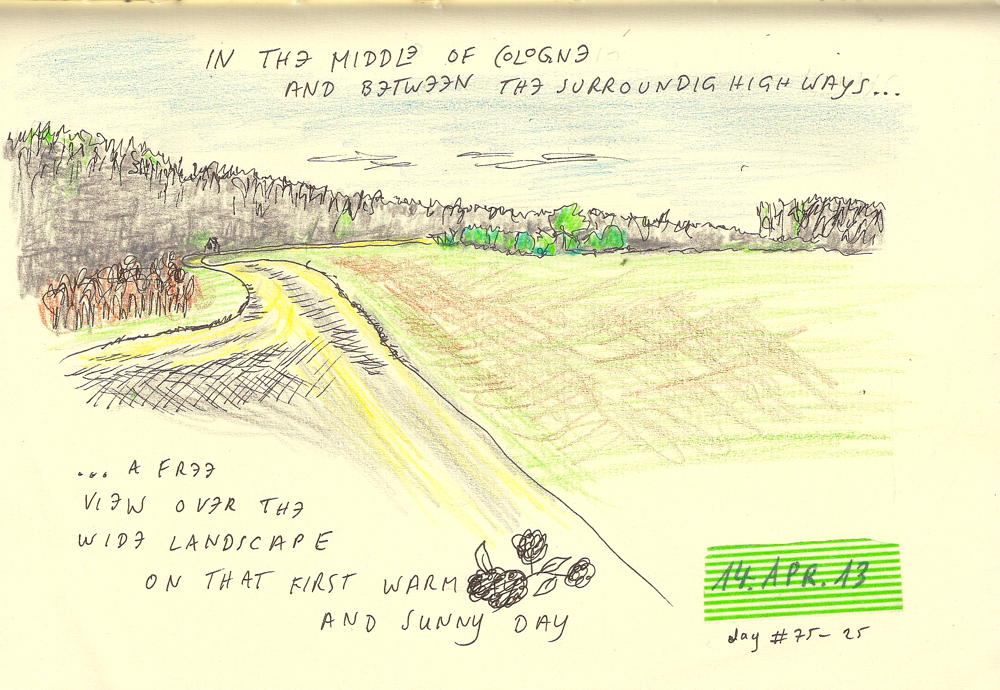 IN THE MIDDLE OF COLOGNE
AND BETWEEN THE SURROUNDIG HIGHWAYS...
... A FREE
VIEW OVER THE
WIDE LANDSCAPE
ON THAT FIRST WARM
AND SUNNY DAY
14. APR. 13
day #75-25